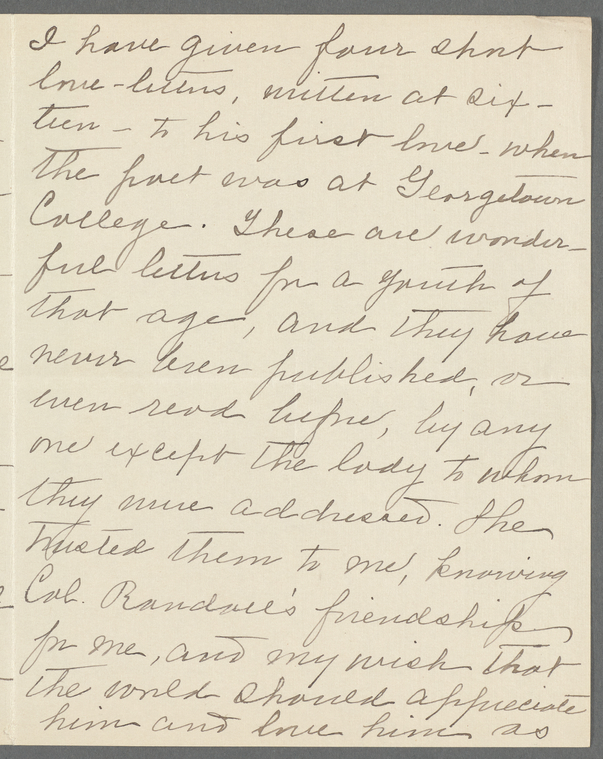 I have given four short
love-letters, written at six-
teen - to his first love - when
the poet was at Georgetown
College. These are wonder-
ful letters for a youth of
that age, and they have
never been published, or
even read before, by any
one except the lady to whom
they were addressed. She
trusted them to me, knowing
Col. Randall's friendship
for me, and my wish that
the world should appreciate
him and love him as